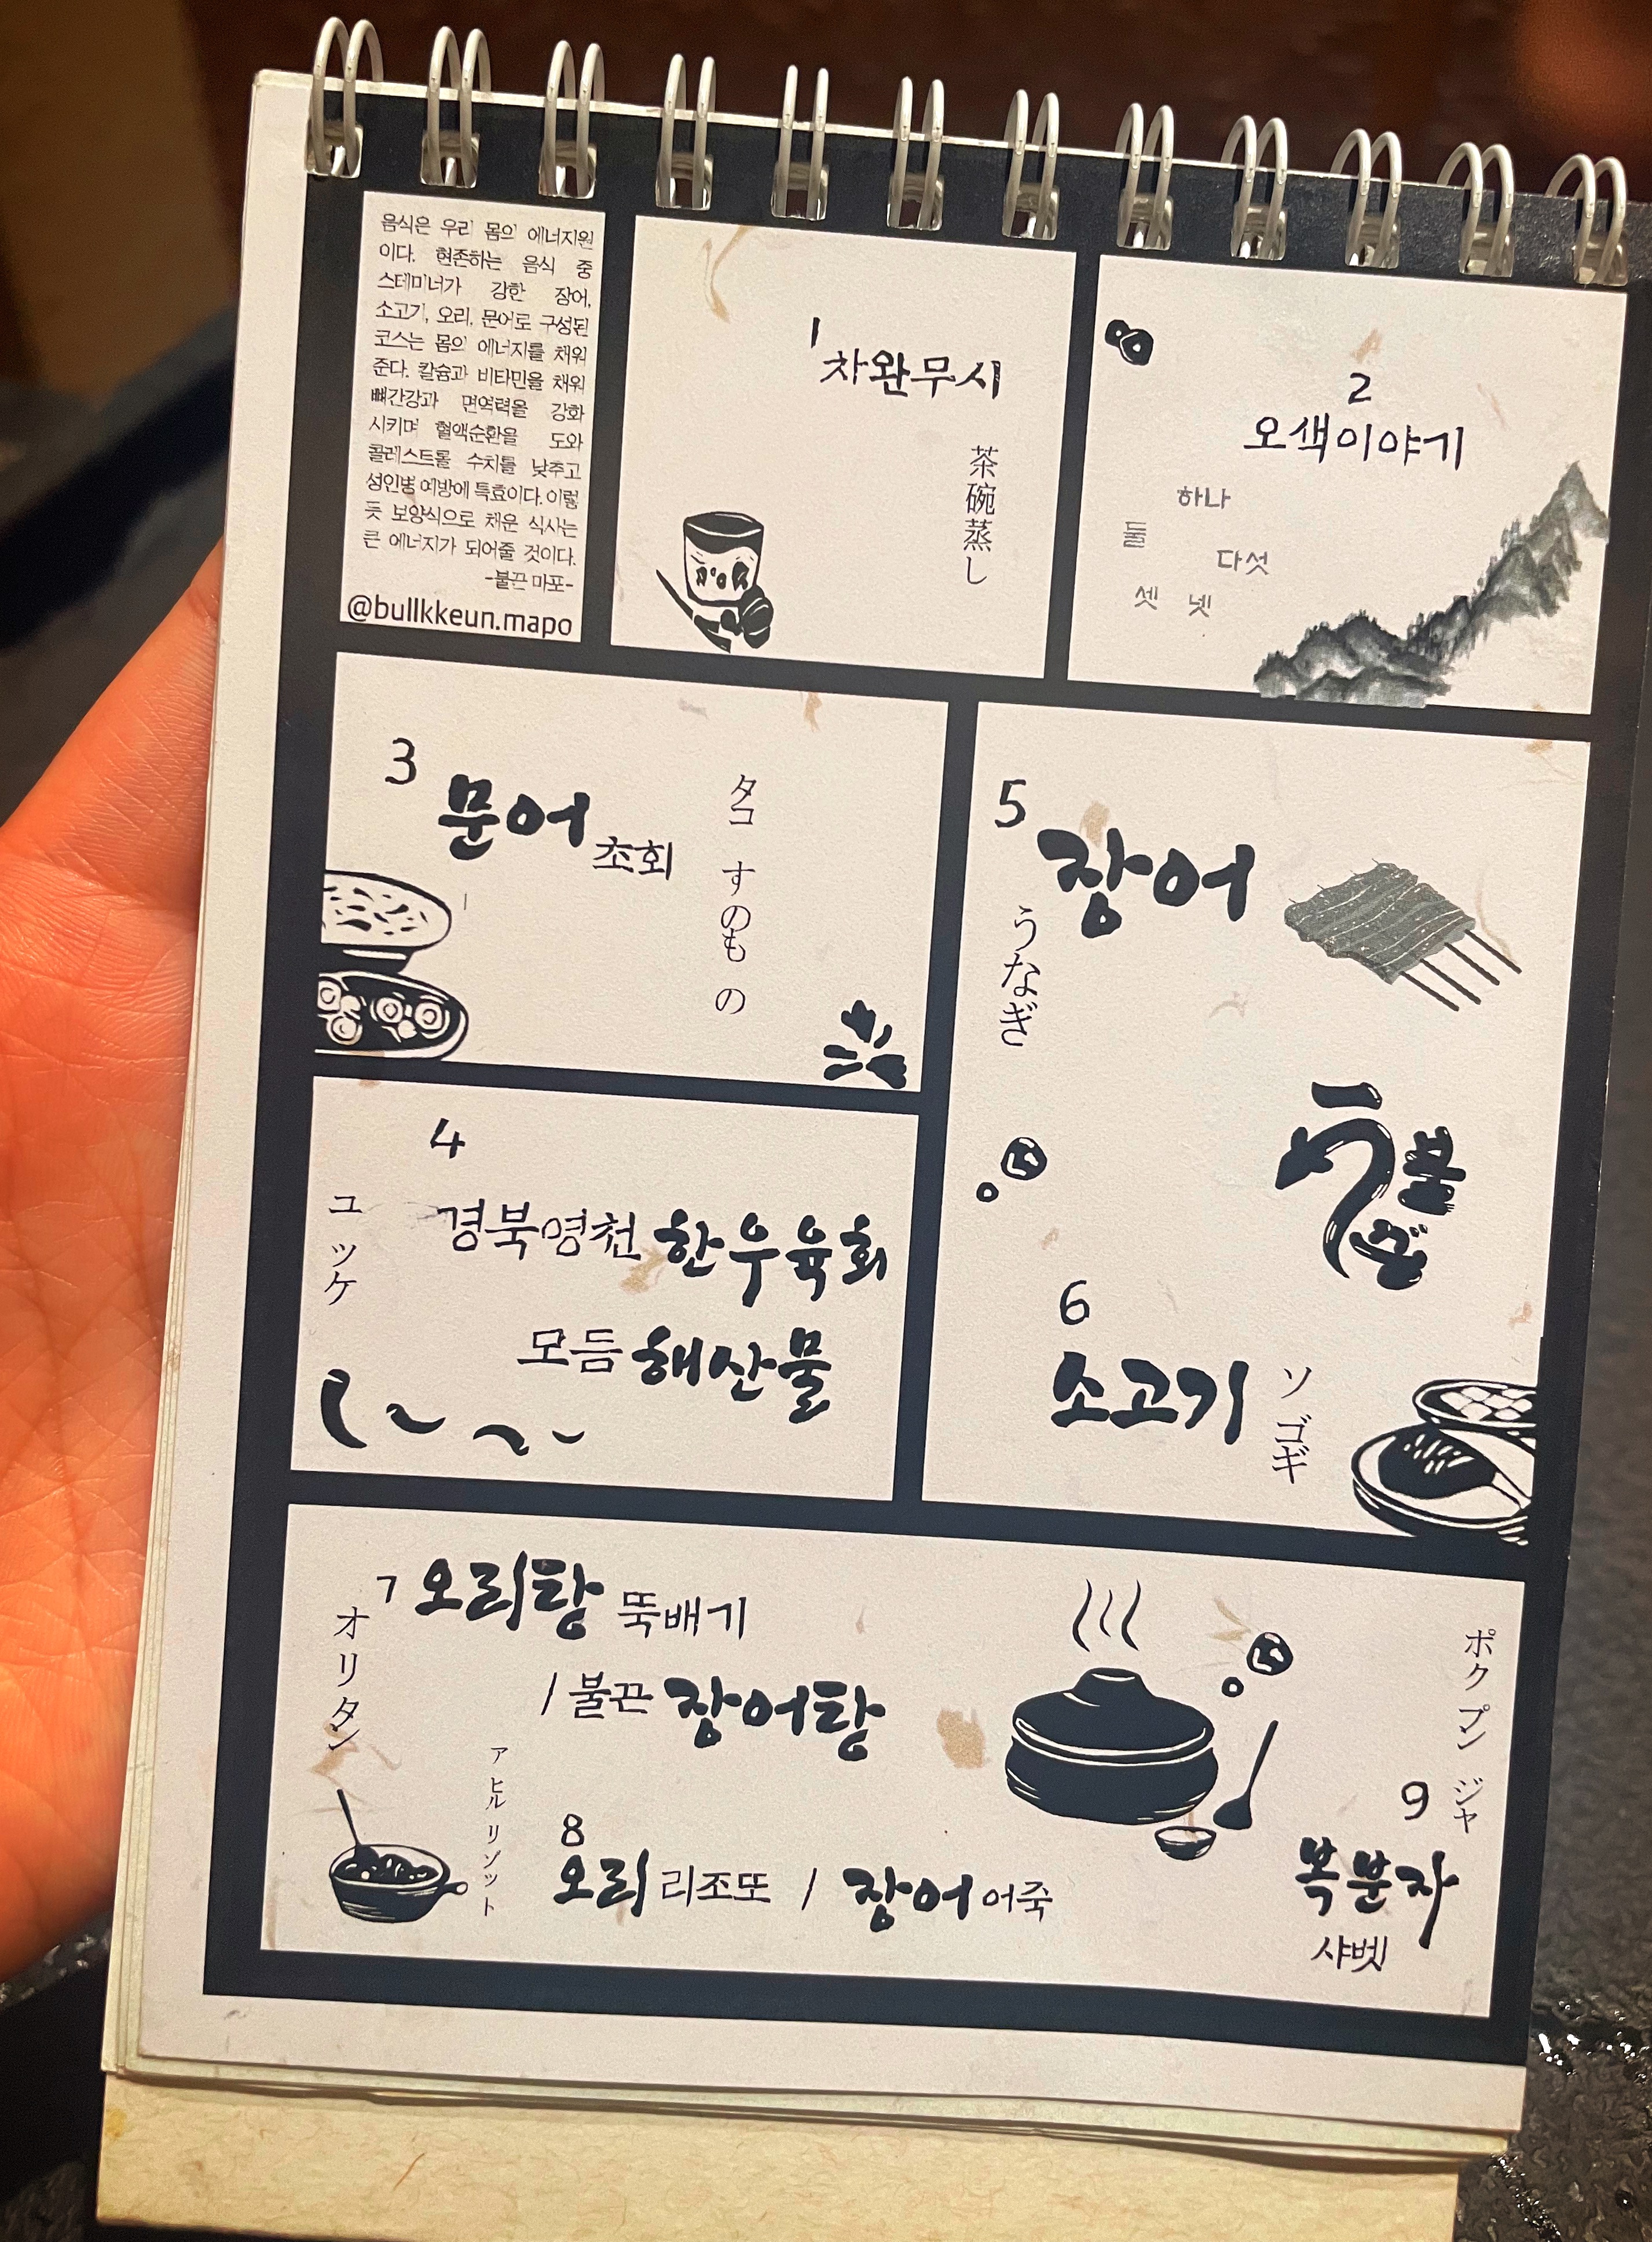 음식은 우리 몸의 에너지원
이다. 현존하는 음식 중
스테미너가 강한 장어,
소고기, 오리, 문어로 구성된
코스는 몸의 에너지를 채워
준다. 칼슘과 비타민을 채워
뼈간강과 면역력을 강화
시키며 혈액순환을 도와
콜레스트롤 수치를 낮추고
성인병 예방에 특효이다. 이렇
듯 보양식으로 채운 식사는
큰 에너지가 되어줄 것이다.
-불끈 마포-
@bullkkeun.mapo
1
차완무시
茶碗蒸し
2
오색이야기
하나
둘
다섯
셋 넷
3
문어 초회
タコ すのもの
4
경북영천 한우육회
모듬 해산물
ユッケ
5
장어
うなぎ
불끈
6
소고기
ソゴギ
7 오리탕 뚝배기
/ 불끈 장어탕
オリタン
8
오리 리조또 / 장어 어죽
アヒル リゾット
9
복분자
샤벳
ポクプン ジャ